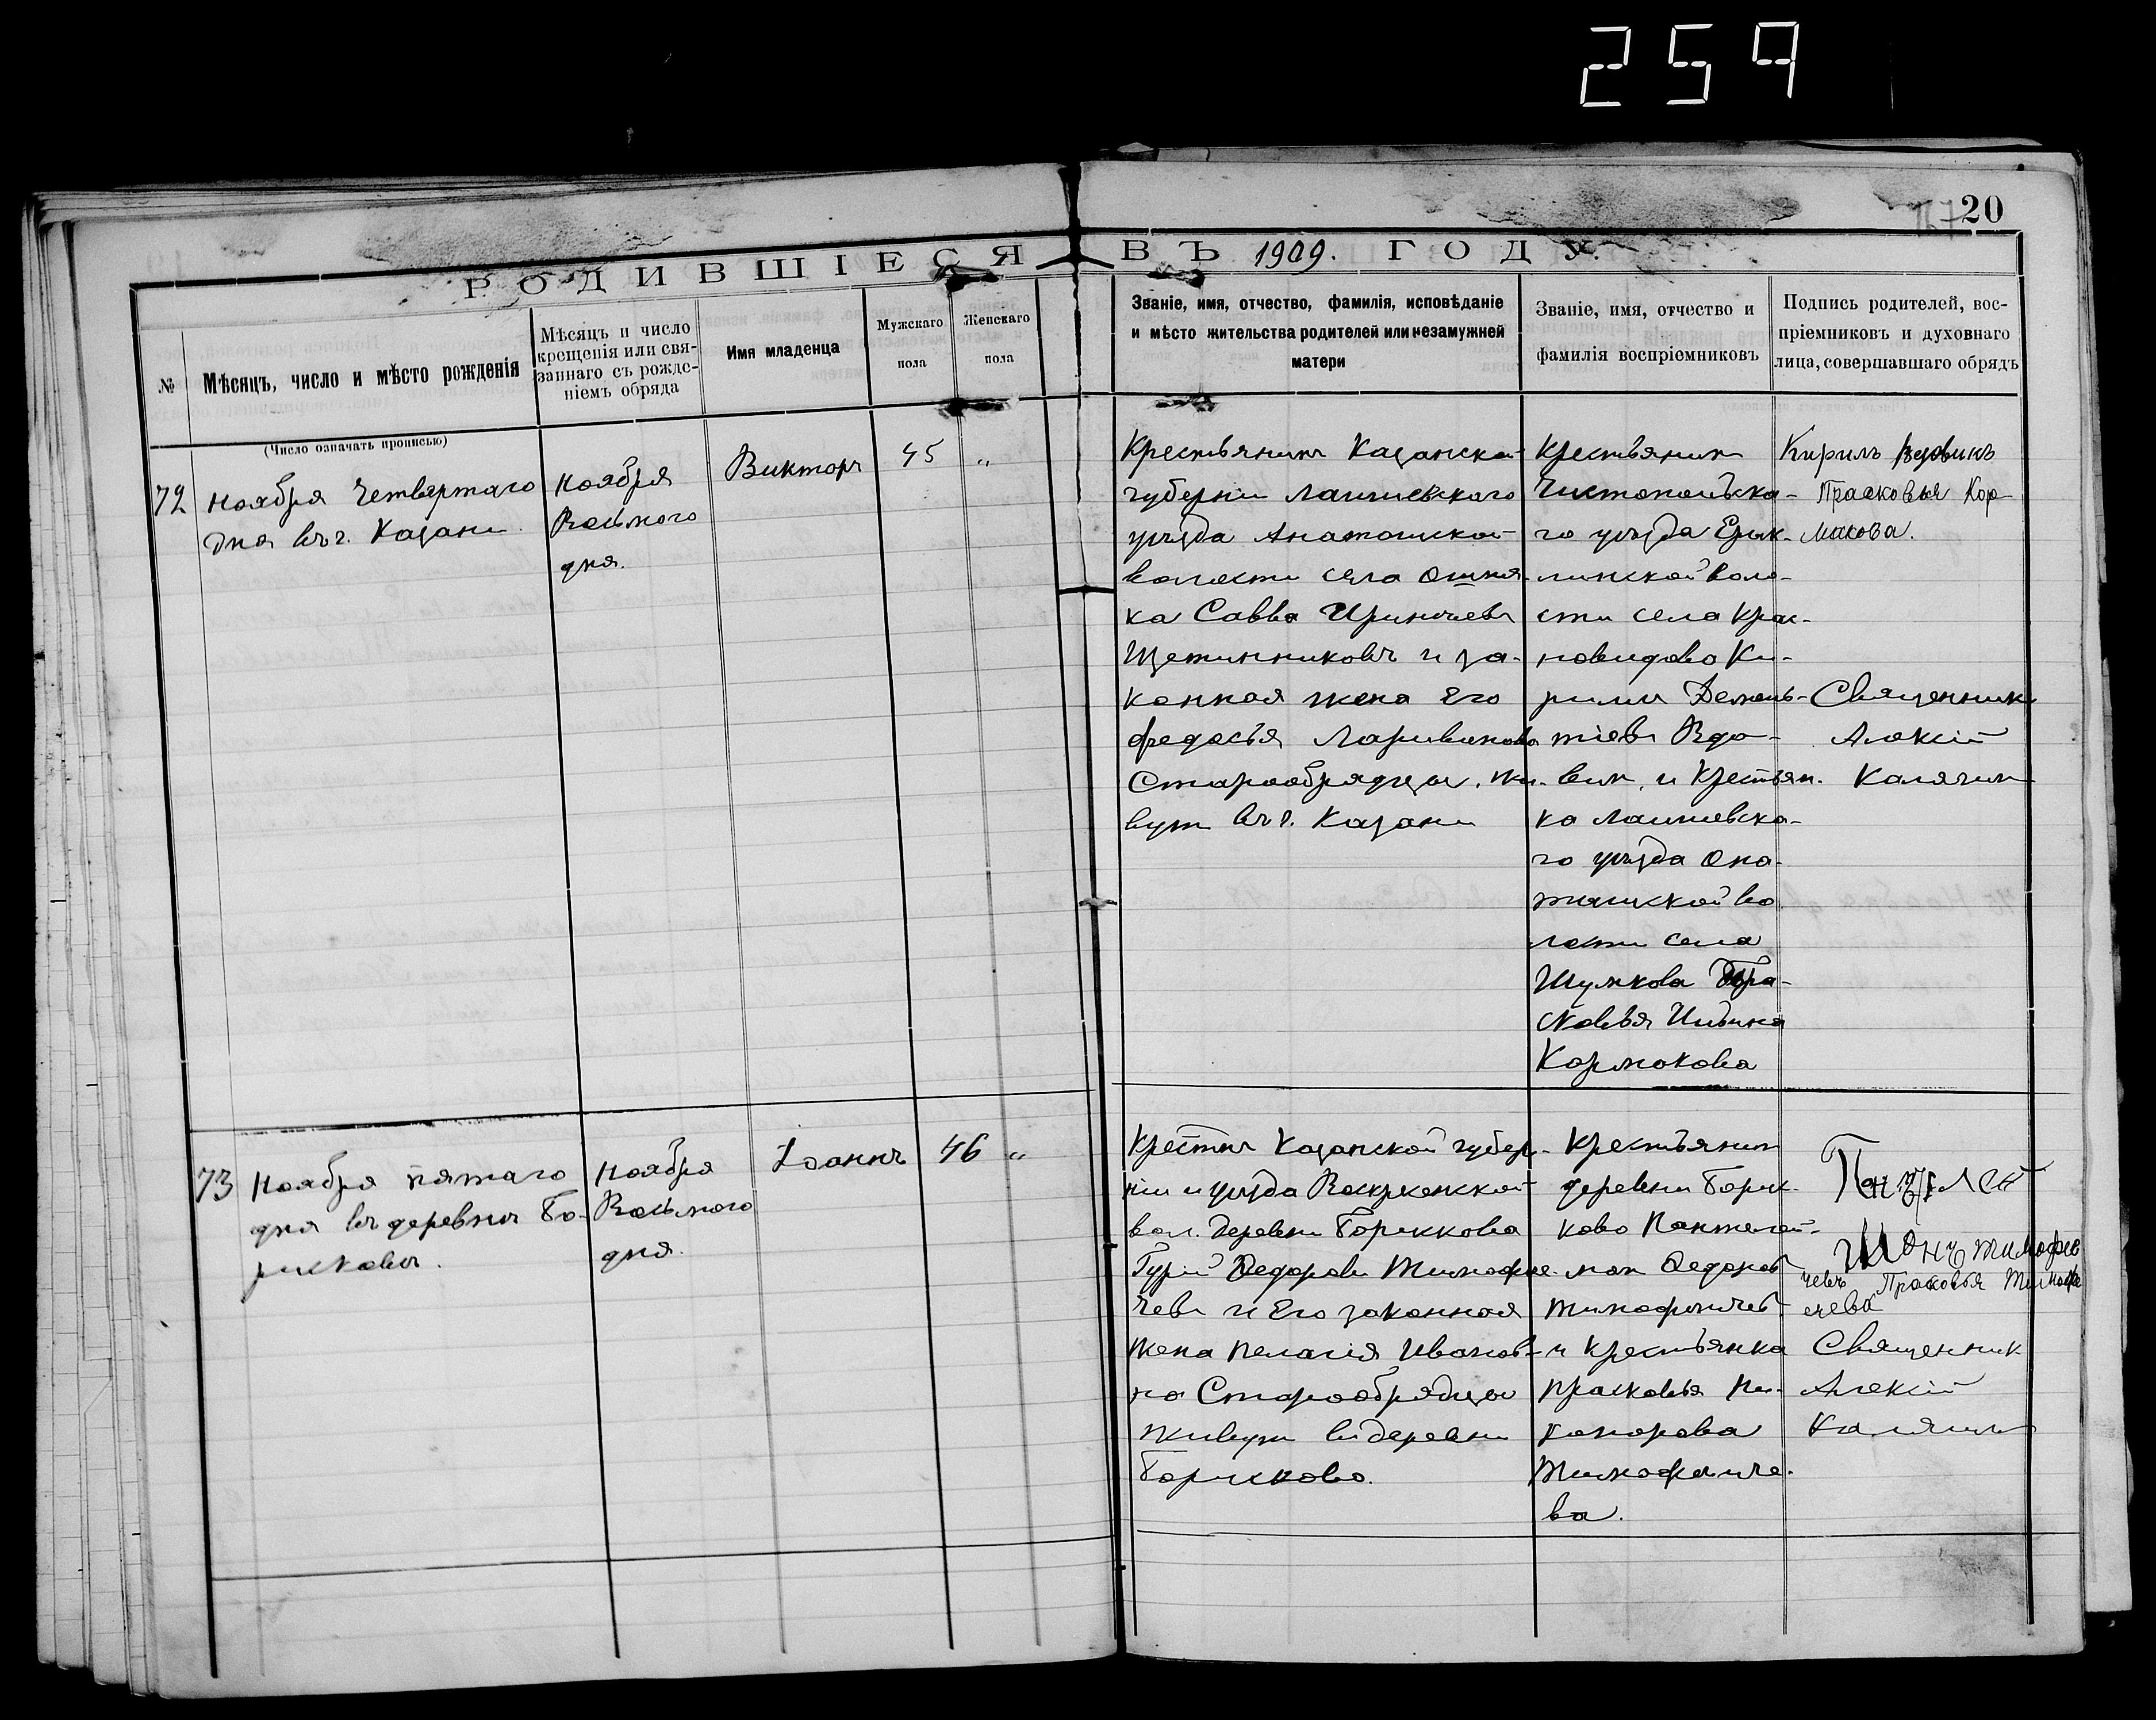 259
20
РОДИВШІЕСЯ ВЪ 1909. ГОДУ.
№
Мѣсяцъ, число и мѣсто рожденія
(Число означать прописью)
Мѣсяцъ и число
крещенія или свя-
заннаго съ рожде-
ніемъ обряда
Имя младенца
Мужскаго
пола
Женскаго
пола
Званіе, имя, отчество, фамилія, исповѣданіе
и мѣсто жительства родителей или незамужней
матери
Званіе, имя, отчество и
фамилія воспріемниковъ
Подпись родителей, вос-
пріемниковъ и духовнаго
лица, совершавшаго обрядъ
72
Ноября четвертаго
дня въ г. Казани
Ноября
Восьмого
дня.
Викторъ
45
"
Крестьянинъ Казанской
губерни Лаишевского
уѣзда
волости села Ошня-
ка Савва
Щетинниковъ и за-
конная жена его
Федосья Ларивонова
Старообрядцы. Жи-
вут въ г. Казани
Крестьянин
Чистопольска-
го уѣзда
линской воло-
сти села Крас-
новидово Ки-
рилл Демень-
тіевъ Вдо-
вин, и Крестьян-
ка Лаишевска-
го уѣзда
ской во
лости села
Шумкова Пра-
сковья
Кормакова
Кирилъ Вдовинъ
Прасковья Кор-
макова.
Священникъ
Алексій
Калягин
73
Ноября пятаго
дня въ деревнѣ Бо-
рисковѣ.
Ноября
Восьмого
дня.
Іоаннъ
46
"
Крестнъ Казанской губер-
ніи и уѣзда Воскресенской
вол. деревни Борискова
Гурій Федоровъ Тимофие-
чевъ и Его законная
жена Пелагія Иванов-
на Старообрядцы
живутъ въ деревни
Борисково.
Крестьянин
деревни Борис-
ково Пантелей-
мон Федоров
Тимофеичев
и Крестьянка
Прасковья Ни-
конорова
Тимофеиче-
ва.
Тимофие
чевъ Прасковья Тимофе
ичева
Священник
Алексій
Калягинъ